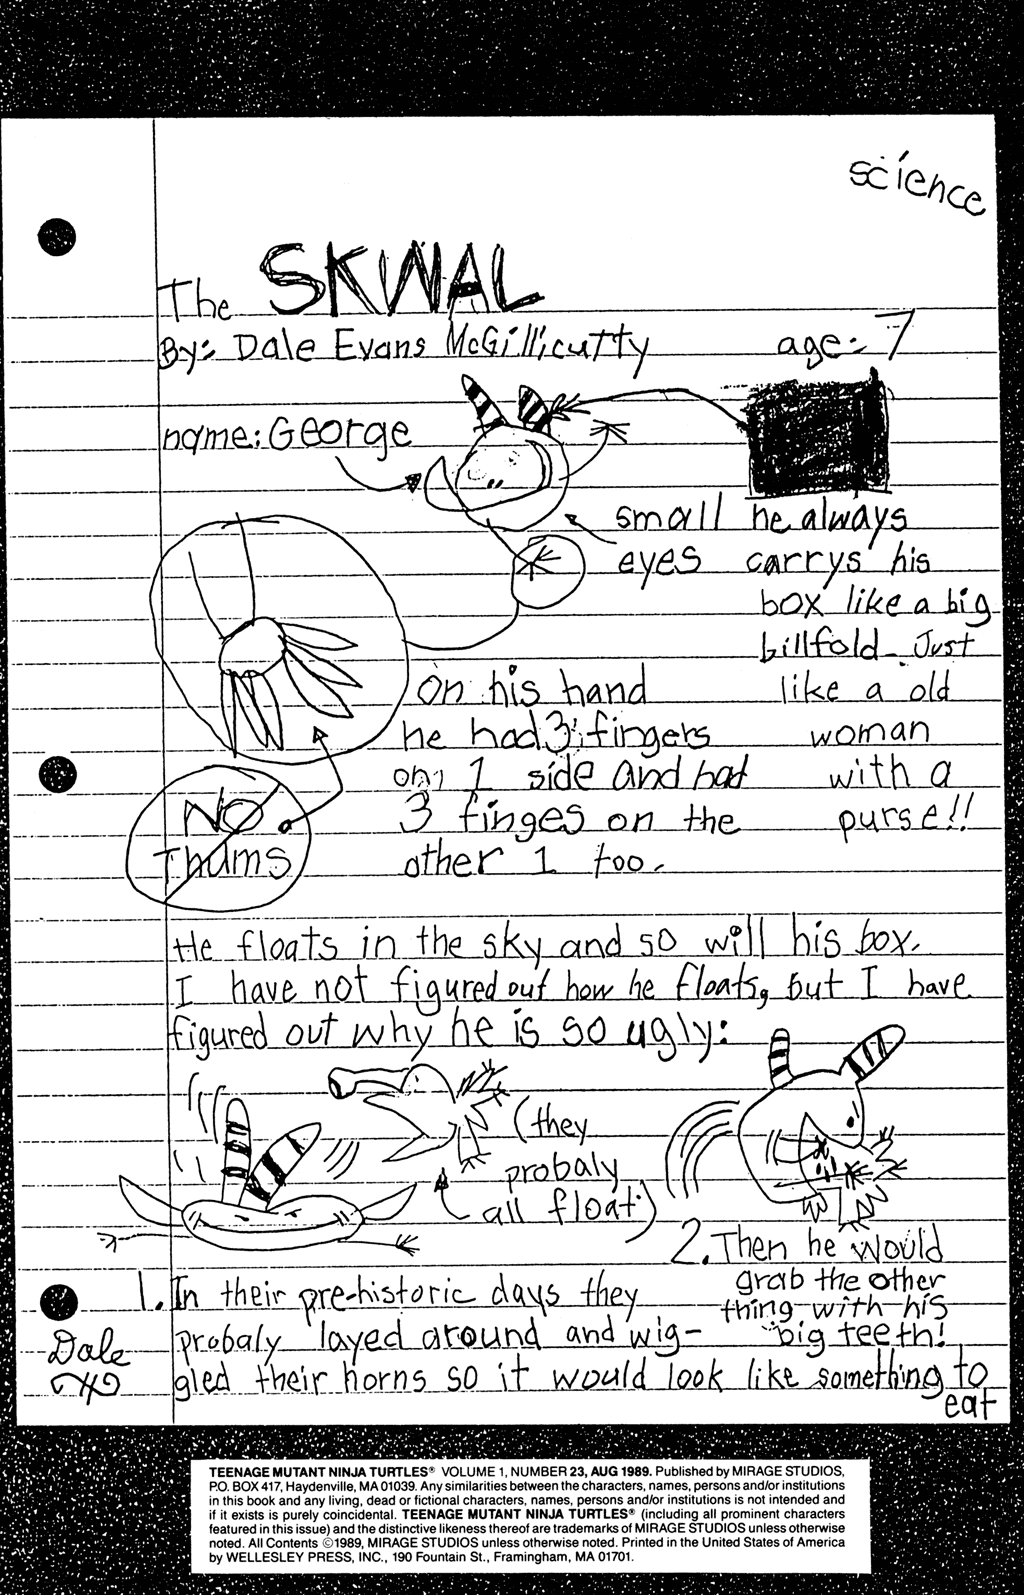 science
The SKWAL
By: Dale Evans McGillicutty age: 7
name: George
small
eyes
he always
carrys his
box like a big
billfold. Just
like a old
woman
with a
purse!!
on his hand
he had 3 fingers
on 1 side and had
3 finges on the
other 1 too.
NO
Thums
He floats in the sky and so will his box.
I have not figured out how he floats, but I have
figured out why he is so ugly:
(they
probaly
all float)
1. In their pre-historic days they
probaly layed around and wig-
gled their horns so it would look like something to
eat
2. Then he would
grab the other
thing with his
big teeth!
Dale
TEENAGE MUTANT NINJA TURTLES® VOLUME 1, NUMBER 23, AUG 1989. Published by MIRAGE STUDIOS,
P.O. BOX 417, Haydenville, MA 01039. Any similarities between the characters, names, persons and/or institutions
in this book and any living, dead or fictional characters, names, persons and/or institutions is not intended and
if it exists is purely coincidental. TEENAGE MUTANT NINJA TURTLES® (including all prominent characters
featured in this issue) and the distinctive likeness thereof are trademarks of MIRAGE STUDIOS unless otherwise
noted. All Contents ©1989, MIRAGE STUDIOS unless otherwise noted. Printed in the United States of America
by WELLESLEY PRESS, INC., 190 Fountain St., Framingham, MA 01701.